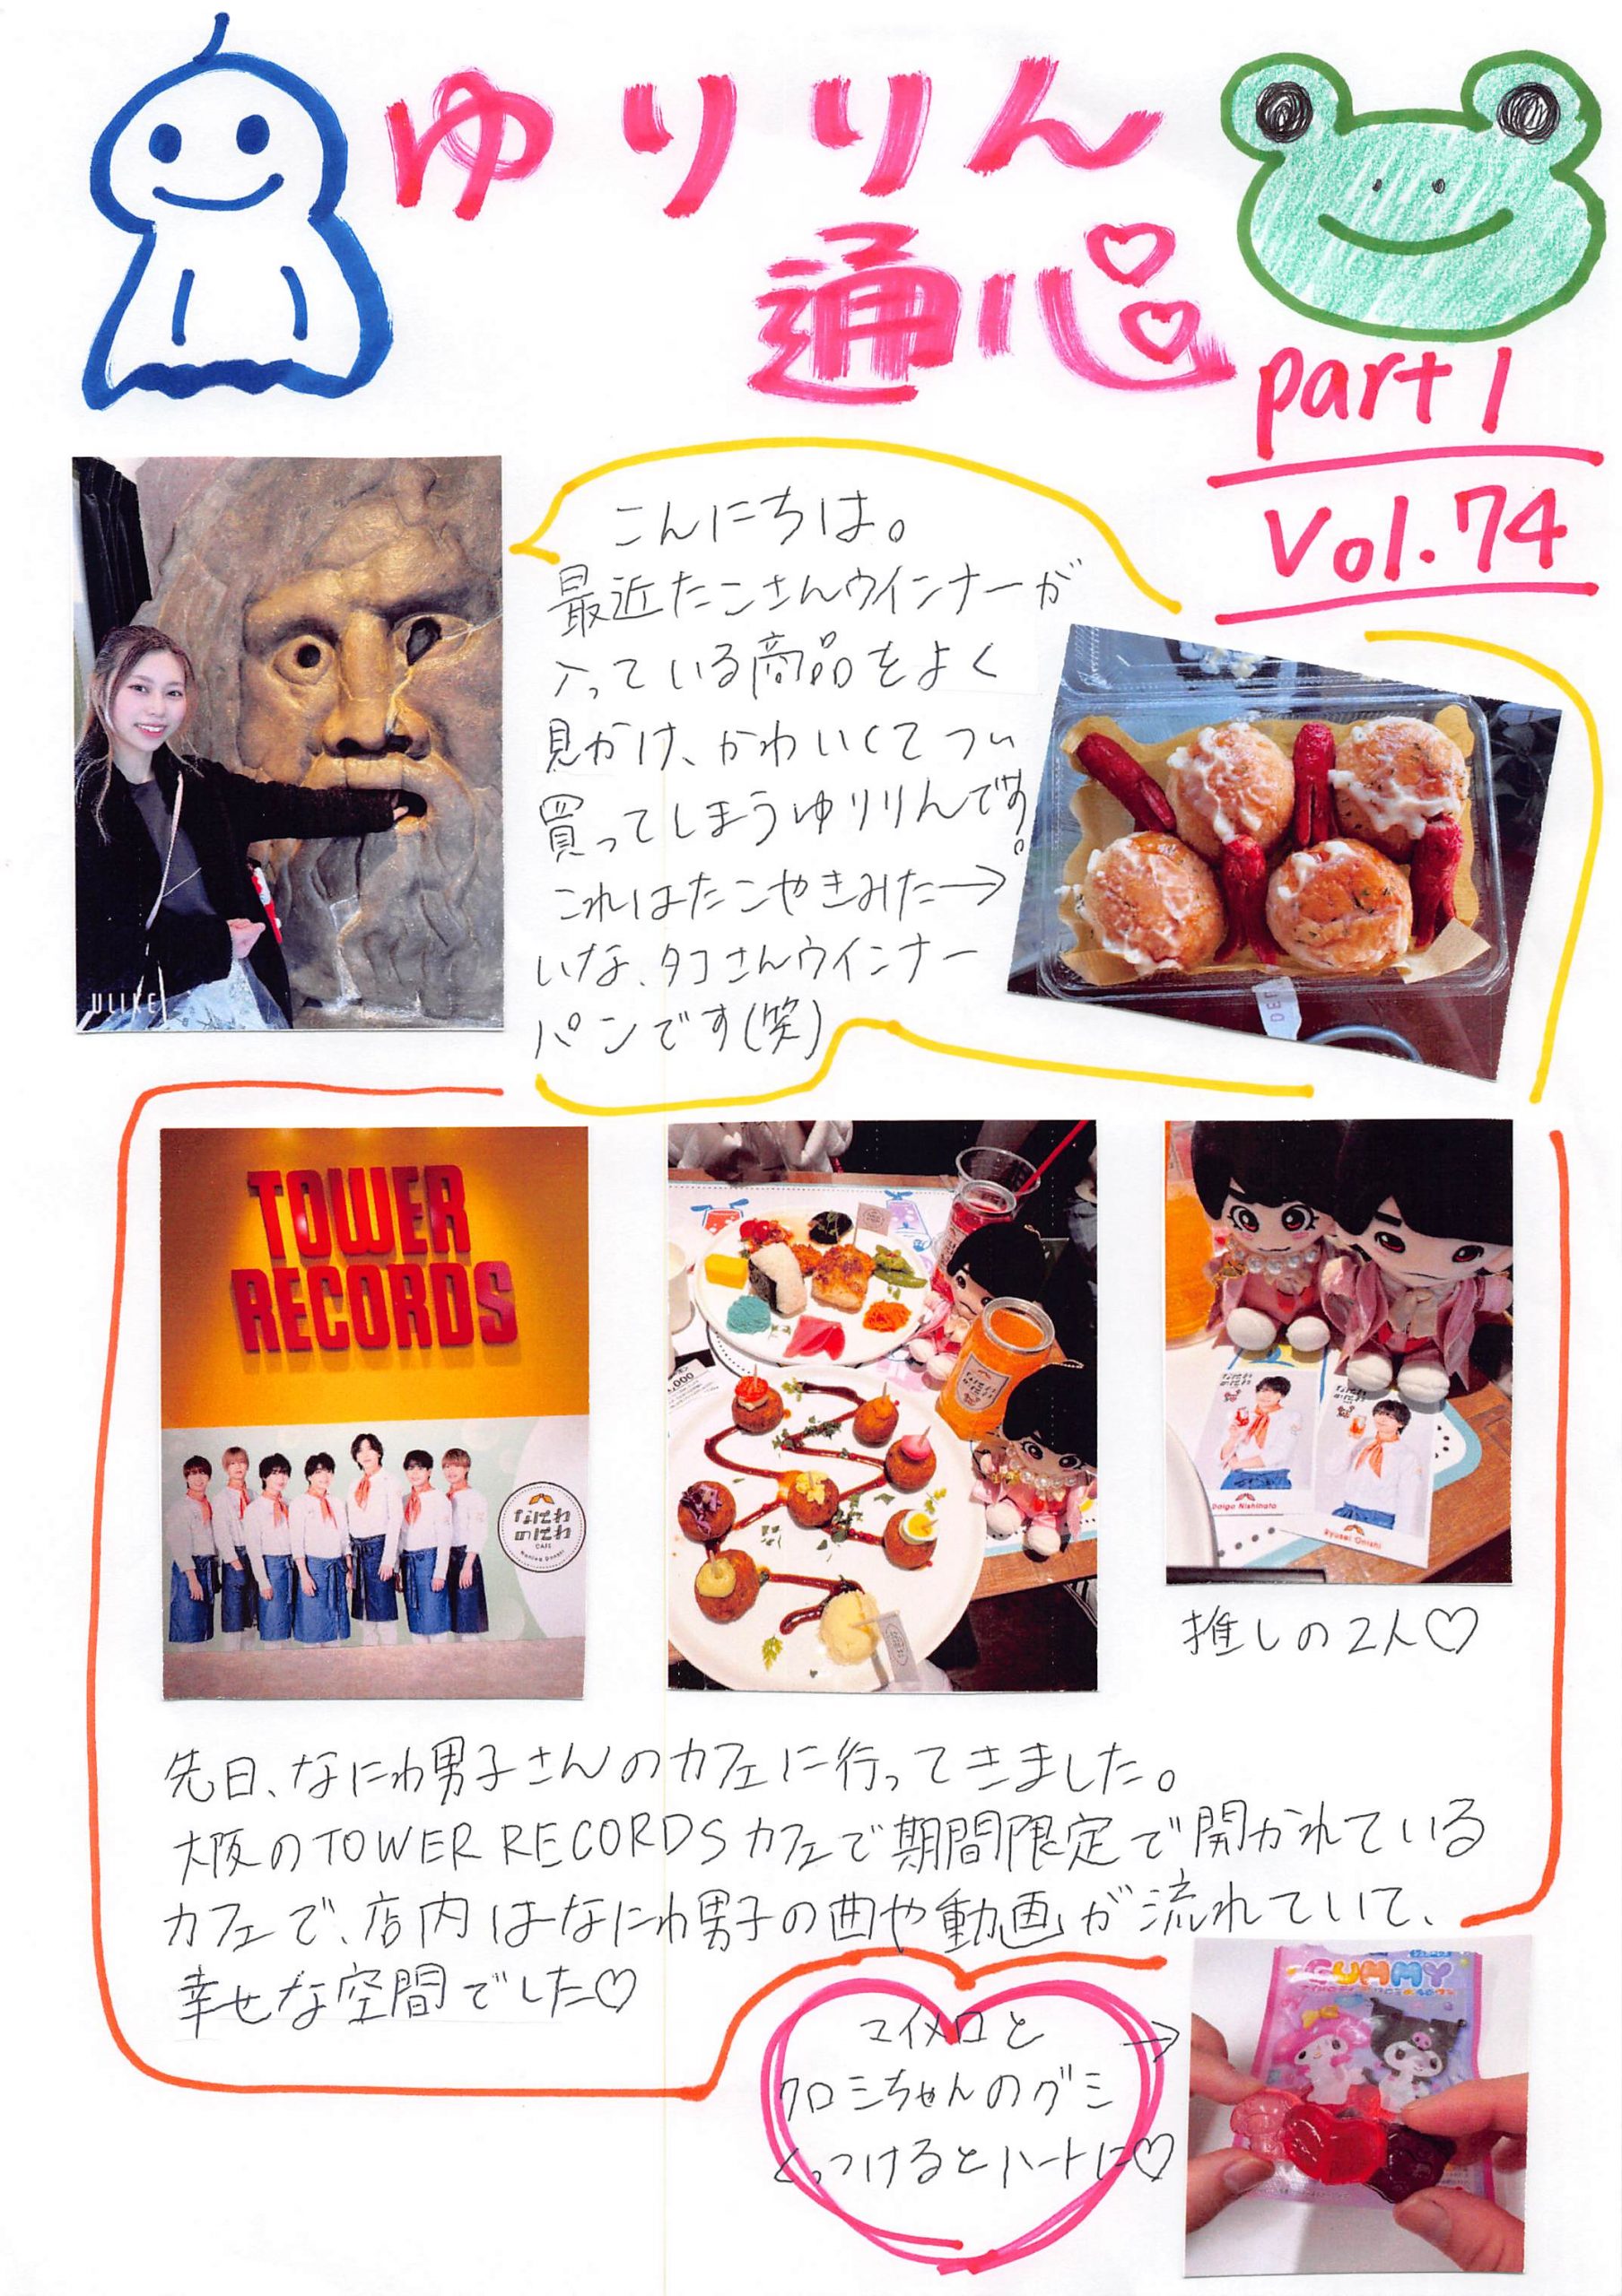 ゆりりん
通心
part 1
Vol.74
こんにちは。
最近たこさんウインナーが
入っている商品をよく
見かけ、かわいくてつい
買ってしまうゆりりんです。
これはたこやきみた→
いな、タコさんウインナー
パンです(笑)
ULIKE
TOWER
RECORDS
なにわ
のにわ
CAFE
Naniwa Danshi
Daigo Nishihata
Ryusei Onishi
推しの2人♡
先日、なにわ男子さんのカフェに行ってきました。
大阪のTOWER RECORDSカフェで期間限定で開かれている
カフェで、店内はなにわ男子の曲や動画が流れていて、
幸せな空間でした♡
マイメロと →
クロミちゃんのグミ
くっつけるとハートに♡
GUMMY